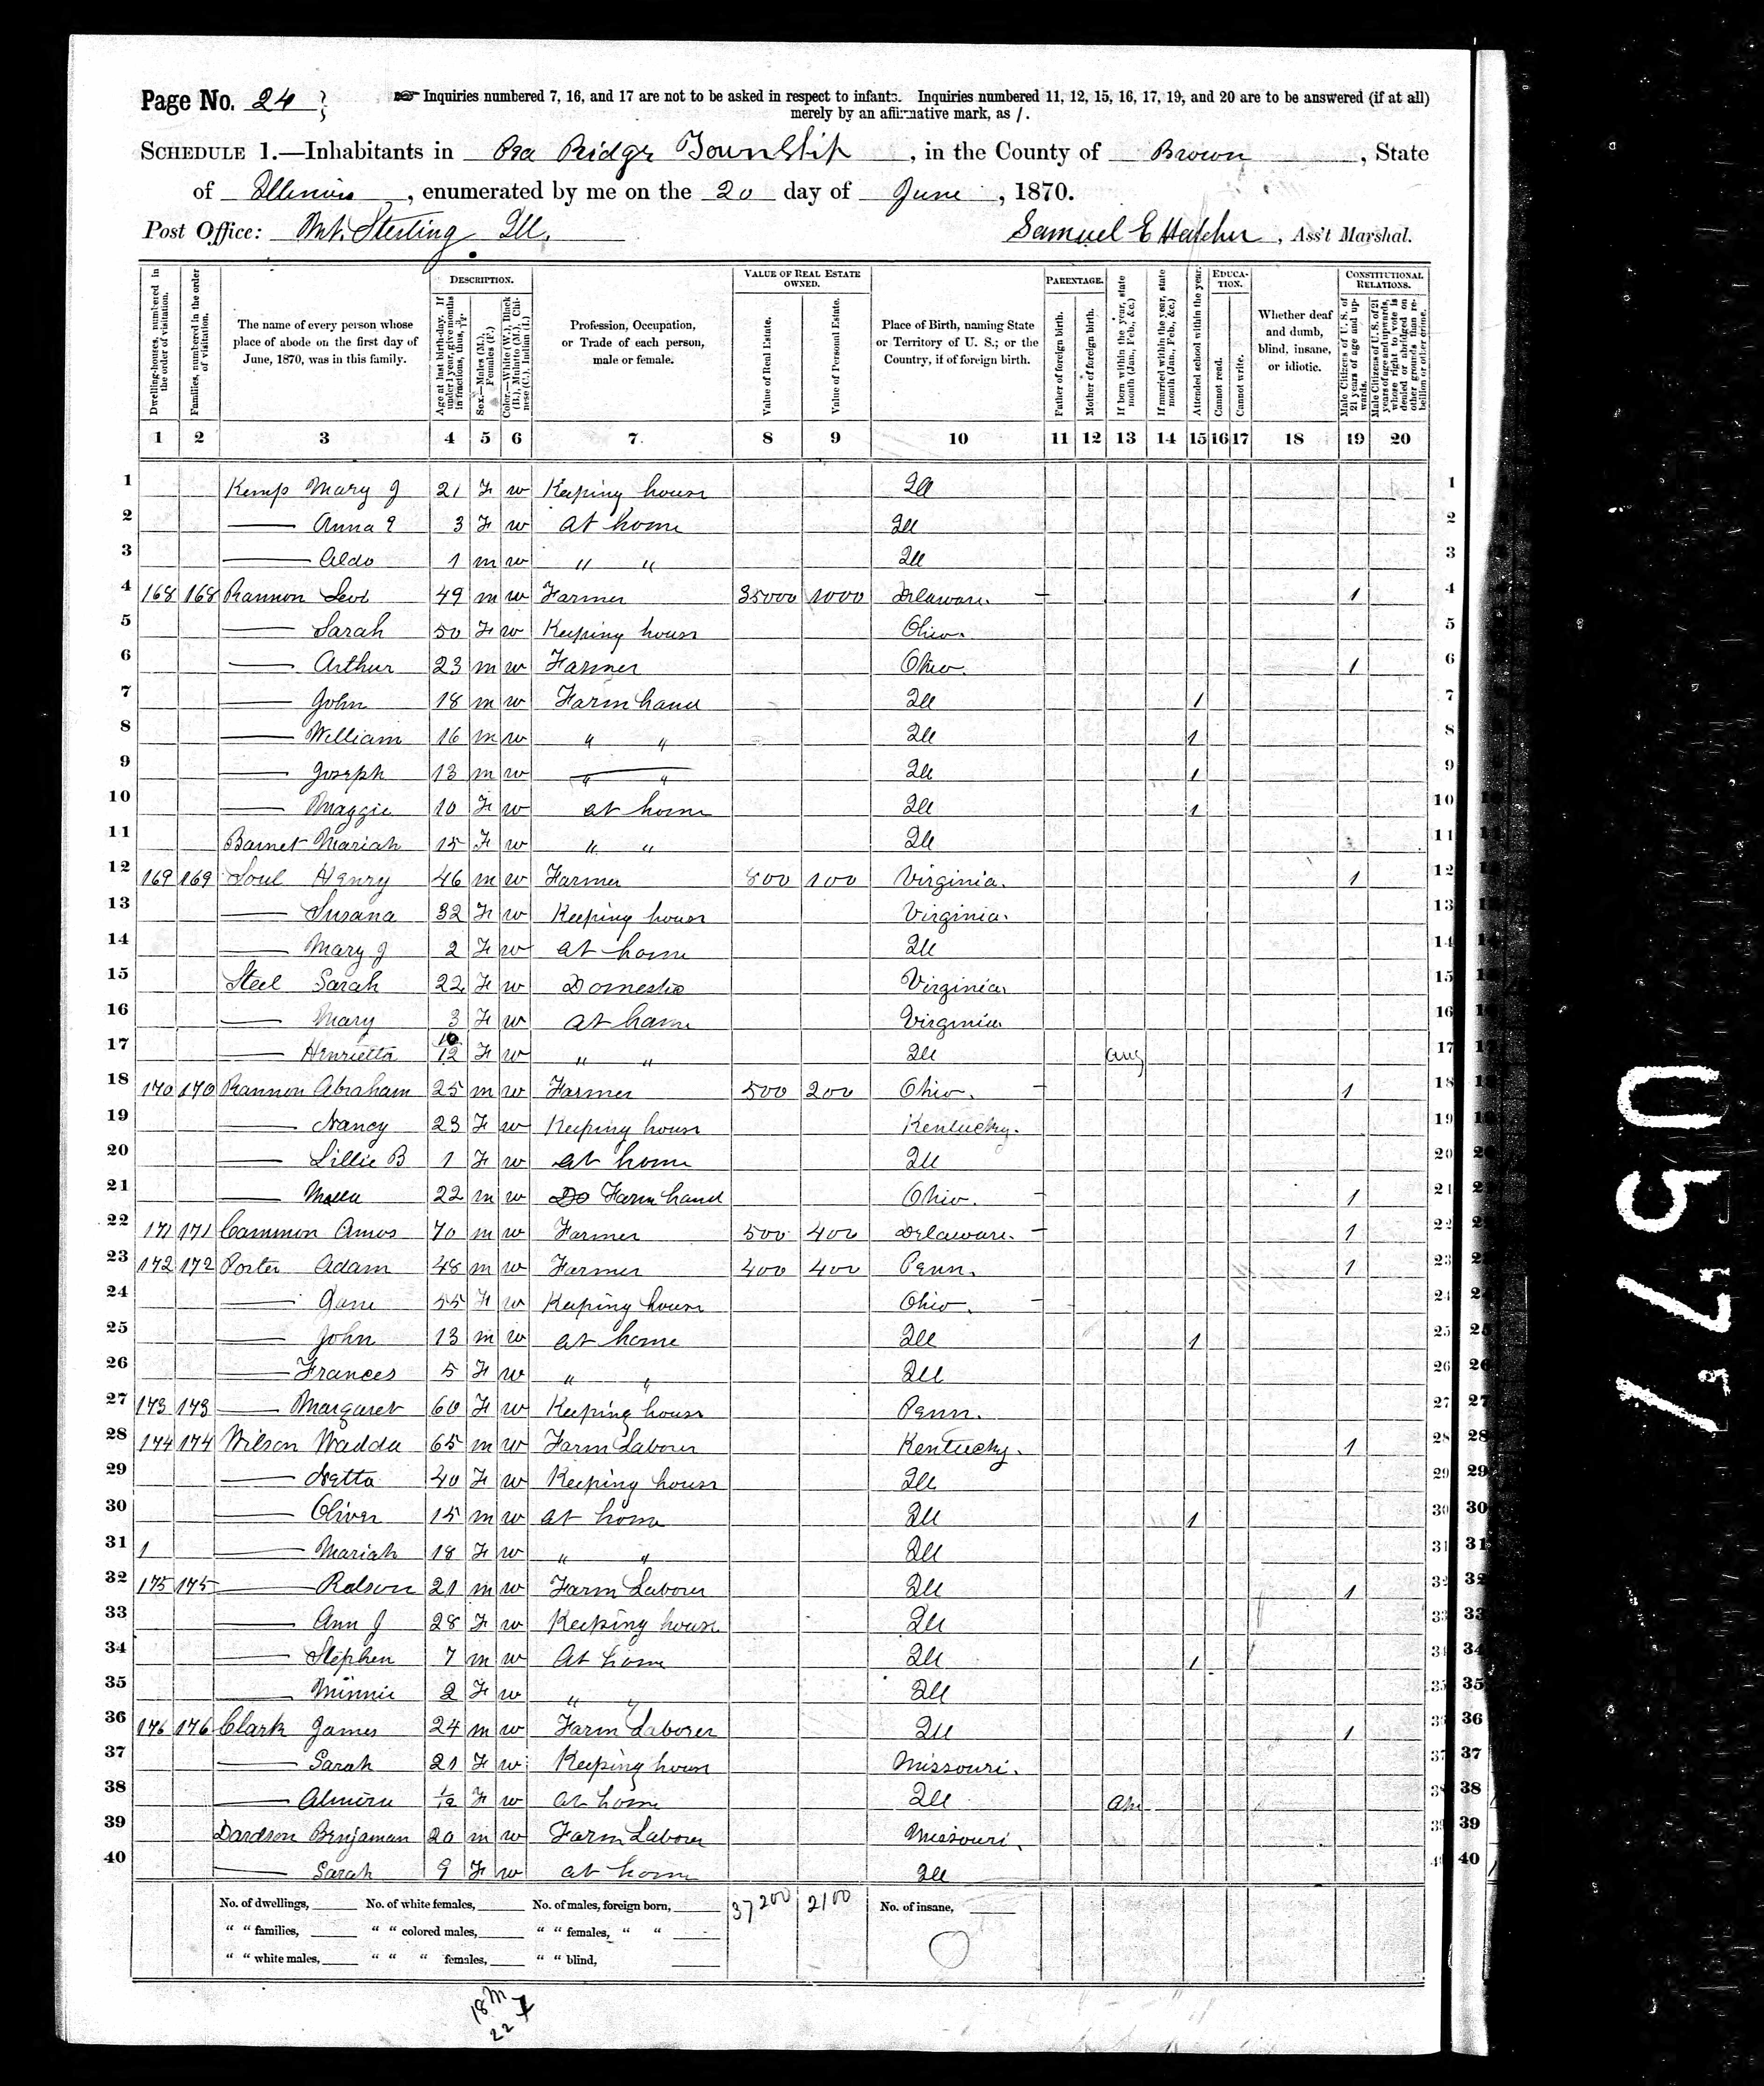 Page No. 24
☞ Inquiries numbered 7, 16, and 17 are not to be asked in respect to infants. Inquiries numbered 11, 12, 15, 16, 17, 19, and 20 are to be answered (if at all)
merely by an affirmative mark, as /.
SCHEDULE 1.—Inhabitants in Pea Ridge Township, in the County of Brown, State
of Illinois, enumerated by me on the 20 day of June, 1870.
Post Office: Mt. Sterling Ill. Samuel E Hatcher, Ass't Marshal.
Dwelling-houses, numbered in the order of visitation.
Families, numbered in the order of visitation.
The name of every person whose place of abode on the first day of June, 1870, was in this family.
DESCRIPTION.
Age at last birth-day. If under 1 year, give months in fractions, thus, 3/12.
Sex.—Males (M.), Females (F.)
Color.—White (W.), Black (B.), Mulatto (M.), Chinese (C.), Indian (I.)
Profession, Occupation, or Trade of each person, male or female.
VALUE OF REAL ESTATE OWNED.
Value of Real Estate.
Value of Personal Estate.
Place of Birth, naming State or Territory of U. S.; or the Country, if of foreign birth.
PARENTAGE.
Father of foreign birth.
Mother of foreign birth.
If born within the year, state month (Jan., Feb., &c.)
If married within the year, state month (Jan., Feb., &c.)
Attended school within the year.
EDUCATION.
Cannot read.
Cannot write.
Whether deaf and dumb, blind, insane, or idiotic.
CONSTITUTIONAL RELATIONS.
Male Citizens of U. S. of 21 years of age and upwards.
Male Citizens of U. S. of 21 years of age and upwards, whose right to vote is denied or abridged on other grounds than rebellion or other crime.
1 2 3 4 5 6 7 8 9 10 11 12 13 14 15 16 17 18 19 20
1 Kemp Mary J 21 F w Keeping house Ill 1
2 — Anna E 3 F w at home Ill 2
3 — Aldo 1 m w " " Ill 3
4 168 168 Rannon Levi 49 m w Farmer 35000 1000 Delaware. 1 4
5 — Sarah 50 F w Keeping house Ohio. 5
6 — Arthur 23 m w Farmer Ohio. 1 6
7 — John 18 m w Farm hand Ill 1 7
8 — William 16 m w " " Ill 1 8
9 — Joseph 13 m w " " Ill 1 9
10 — Maggie 10 F w at home Ill 1 10
11 Barnet Mariah 15 F w " " Ill 11
12 169 169 Soul Henry 46 m w Farmer 800 100 Virginia. 1 12
13 — Susana 32 F w Keeping house Virginia. 13
14 — Mary J 2 F w at home Ill 14
15 Steel Sarah 22 F w Domestic Virginia 15
16 — Mary 3 F w at home Virginia 16
17 — Henrietta 10/12 F w " " Ill Aug 17
18 170 170 Rannon Abraham 25 m w Farmer 500 200 Ohio. 1 18
19 — Nancy 23 F w Keeping house Kentucky. 19
20 — Lillie B 1 F w at home Ill 20
21 — 22 m w Do Farm hand Ohio. 1 21
22 171 171 Cammon Amos 70 m w Farmer 500 400 Delaware. 1 22
23 172 172 Porter Adam 48 m w Farmer 400 400 Penn. 1 23
24 — Jane 55 F w Keeping house Ohio. 24
25 — John 13 m w at home Ill 1 25
26 — Frances 5 F w " " Ill 26
27 173 173 — Margaret 60 F w Keeping house Penn. 27
28 174 174 Wilson Wadda 65 m w Farm Laborer Kentucky. 1 28
29 — Netta 40 F w Keeping house Ill 29
30 — Oliver 15 m w at home Ill 1 30
31 1 — Mariah 18 F w " " Ill 31
32 175 175 — Robson 21 m w Farm Laborer Ill 1 32
33 — Ann J 28 F w Keeping house Ill 33
34 — Stephen 7 m w At home Ill 1 34
35 — Minnie 2 F w " " Ill 35
36 176 176 Clark James 24 m w Farm Laborer Ill 1 36
37 — Sarah 21 F w Keeping house Missouri. 37
38 — Almira F w at home Ill 38
39 Benjaman 20 m w Farm Laborer Missouri. 39
40 — Sarah 9 F w at home Ill 40
No. of dwellings, No. of white females, No. of males, foreign born, 37200 2100 No. of insane,
" " families, " " colored males, " " females, " "
" " white males, " " " females, " " blind,
18 M
22 F
0571